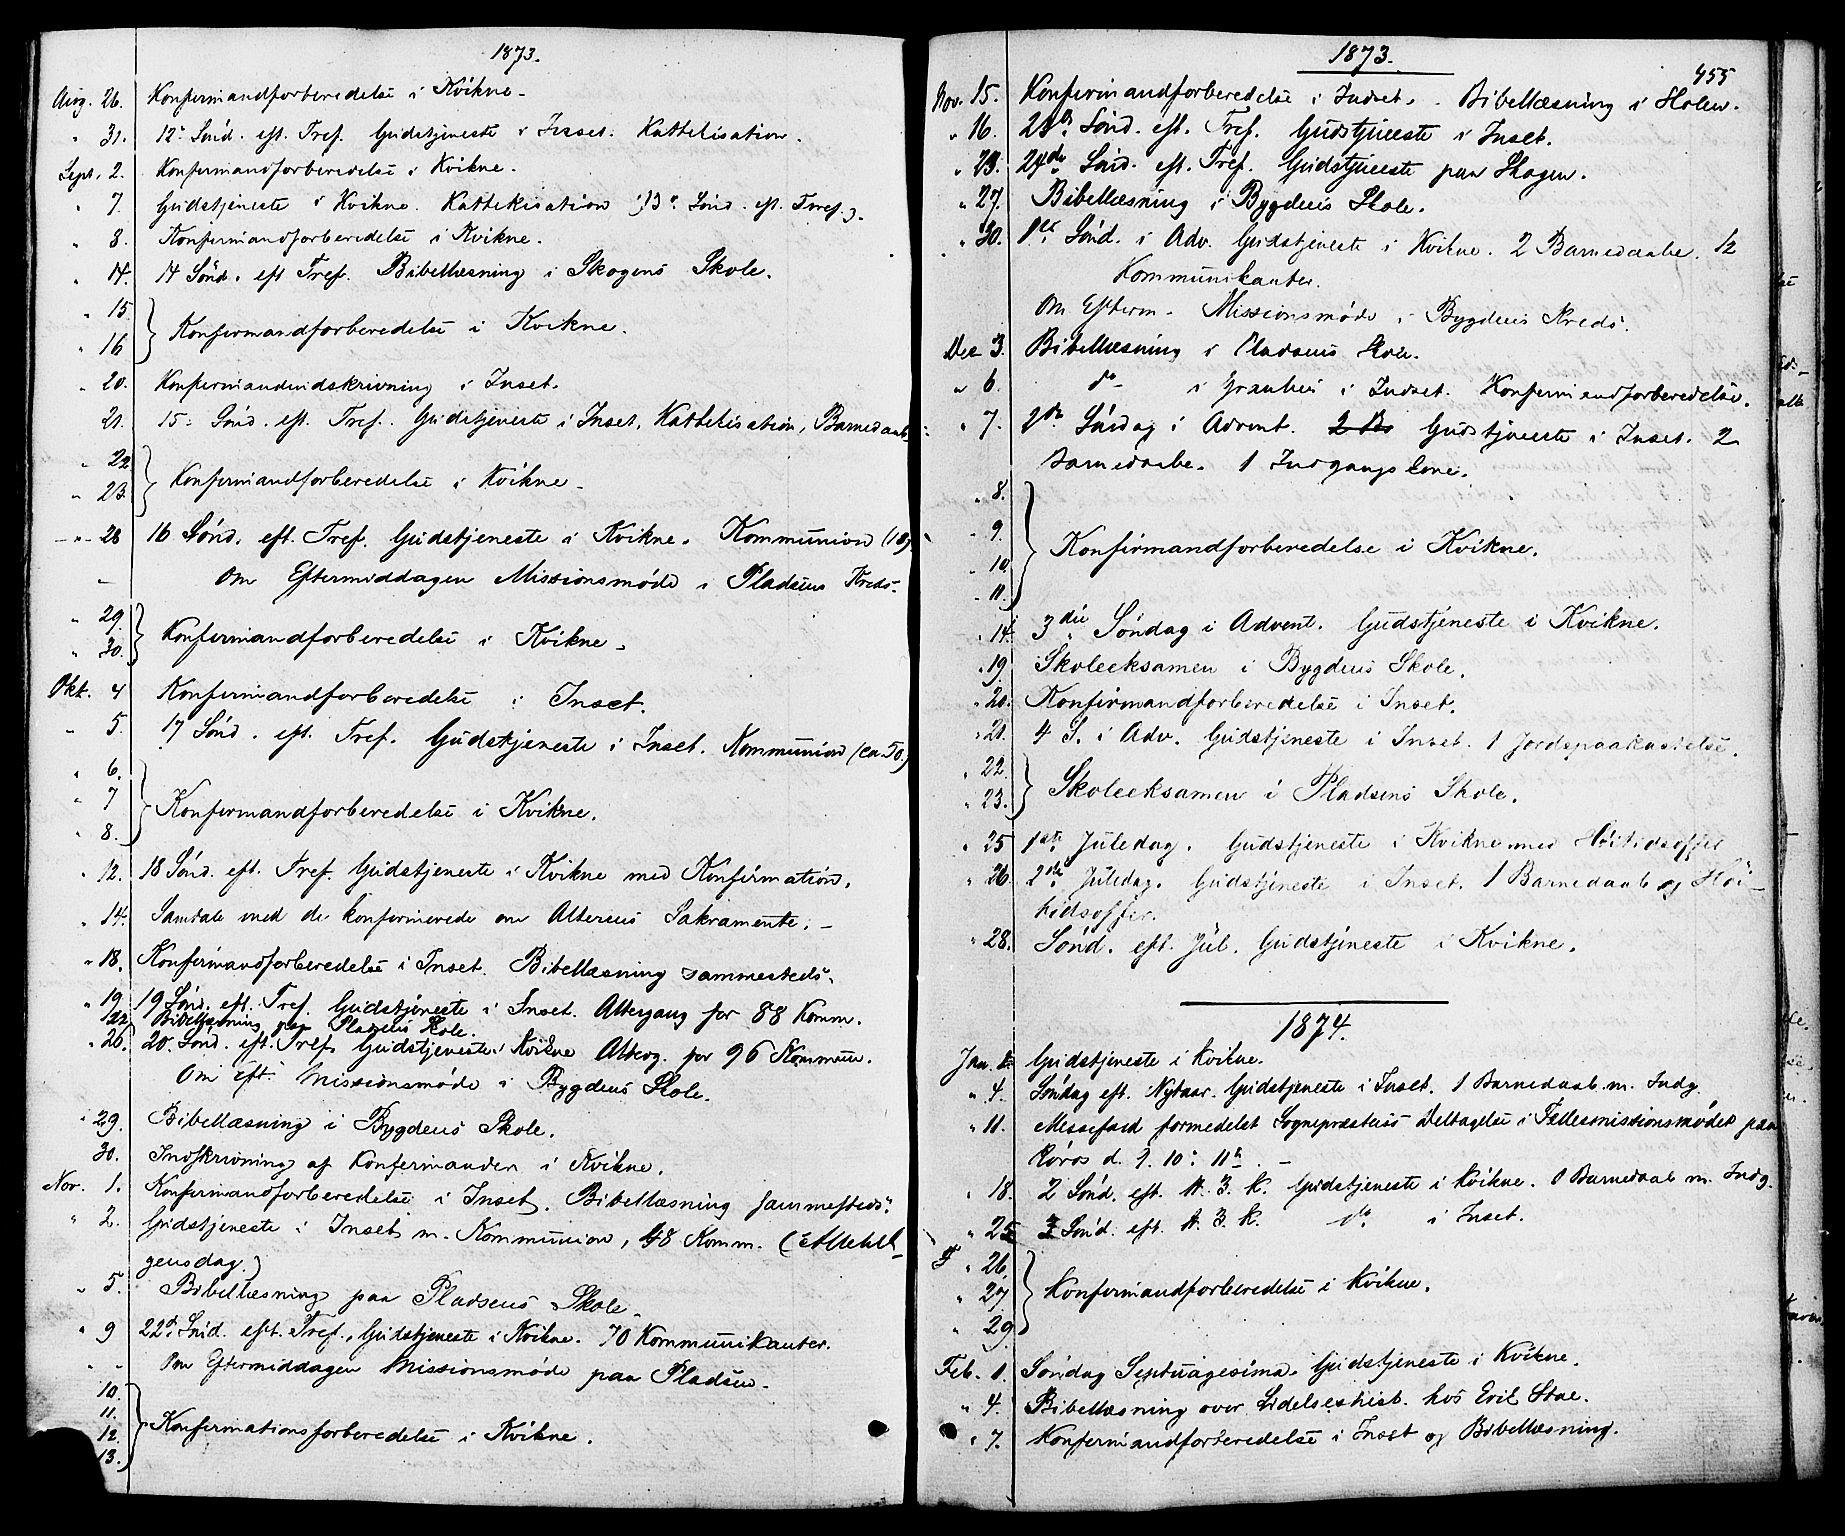 1873.
Aug. 26. Konfirmandforberedelse i Kvikne.
" 31. 12te Sønd. eft. Tref. Gudstjeneste i Inset. Kattekisation.
Sept. 2. Konfirmandforberedelse i Kvikne.
" 7. Gudstjeneste i Kvikne. Kattekisation (13de Sønd. eft. Tref.).
" 8. Konfirmandforberedelse i Kvikne.
" 14. 14 Sønd. eft Tref. Bibellæsning i Skogens Skole.
" 15.
" 16 } Konfirmandforberedelse i Kvikne.
" 20. Konfirmandindskrivning i Inset.
21. 15. Sønd. eft. Tref. Gudstjeneste i Inset, Kattekisation, Barnedaab
" 22
" 23. } Konfirmandforberedelse i Kvikne.
" 28 16 Sønd. eft. Tref. Gudstjeneste i Kvikne. Kommunion
Om Eftermiddagen Missionsmøde i Pladsens Kreds.
" 29.
" 30. } Konfirmandforberedelse i Kvikne.
Okt. 4 Konfirmandforberedelse i Inset.
" 5. 17 Sønd. eft. Tref. Gudstjeneste i Inset. Kommunion (ca 50.)
" 6.
" 7
" 8. } Konfirmandforberedelse i Kvikne.
" 12. 18 Sønd. eft. Tref. Gudstjeneste i Kvikne med Konfirmation.
" 14. Samtale med de konfirmerede om Alterens Sakramente. –
" 18. Konfirmandforberedelse i Inset. Bibellæsning sammesteds.
" 19. 19 Sønd. eft. Tref. Gudstjeneste i Inset. Altergang for 88 Komm.
" 22 Bibellæsning paa Pladsens Skole.
" 26. 20. Sønd. eft. Tref. Gudstjeneste i Kvikne Alterg. for 96 Kommun.
Om Eft. Missionsmøde i Bygdens Skole.
" 29. Bibellæsning i Bygdens Skole.
30. Indskrivning af Konfirmander i Kvikne.
Nov. 1. Konfirmandforberedelse i Inset. Bibellæsning sammesteds.
" 2. Gudstjeneste i Inset m. Kommunion, 48 Komm. (Allehel-
gensdag.)
" 5. Bibellæsning paa Pladsens Skole.
" 9 22de Sønd. eft. Tref., Gudstjeneste i Kvikne. 70 Kommunikanter.
" " Om Eftermiddagen Missionsmøde paa Pladsen.
10.
11.
12
13. } Konfirmationsforberedelse i Kvikne.
1873.
455
Nov. 15. Konfirmandforberedelse i Indset. Bibellæsning i Holen.
" 16. 23de Sønd. eft. Tref. Gudstjeneste i Inset.
" 23. 24de Sønd. eft. Tref. Gudstjeneste paa Skogen.
" 27. Bibellæsning i Bygdens Skole.
" 30. 1ste Sønd. i Adv. Gudstjeneste i Kvikne. 2 Barnedaabe. 12
Kommunikanter.
Om Efterm. Missionsmøde i Bygdens Kreds.
Dec 3. Bibellæsning i Pladsens Skole.
" 6. do i i Indset. Konfirmandforberedelse.
" 7. 2den Søndag i Advent. Gudstjeneste i Inset. 2
Barnedaabe. 1 Indgangskone.
" 8.
" 9.
" 10.
" 11. } Konfirmandforberedelse i Kvikne.
" 14. 3die Søndag i Advent. Gudstjeneste i Kvikne.
" 19. Skoleeksamen i Bygdens Skole.
" 20. Konfirmandforberedelse i Inset.
" 21. 4 S. i Adv. Gudstjeneste i Inset. 1 Jordspaakastelse.
" 22.
" 23. } Skoleeksamen i Pladsens Skole.
" 25 1ste Juledag. Gudstjeneste i Kvikne med Høitidsoffer
" 26. 2den Juledag. Gudstjeneste i Inset. 1 Barnedaab og Høi-
tidsoffer.
" 28. Sønd. eft. Jul. Gudstjeneste i Kvikne.
1874.
Jan. 1. Gudstjeneste i Kvikne.
" 4. Søndag eft. Nytaar. Gudstjeneste i Inset. 1 Barnedaab m. Indg.
" 11. Messefald formedelst Sognepræstens Deltagelse i Fællesmissionsmødet paa
Røros d. 9. 10. 11te. –
" 18. 2 Sønd. eft. H. 3. K. Gudstjeneste i Kvikne. 1 Barnedaab m. Indg.
" 25 3 Sønd. eft. H. 3. K. do i Inset.
" 26.
" 27
" 29. } Konfirmandforberedelse i Kvikne.
Feb. 1. Søndag Septuagesima. Gudstjeneste i Kvikne.
" 4. Bibellæsning over Lidelseshist. hos
" 7. Konfirmandforberedelse i Inset og Bibellæsning.